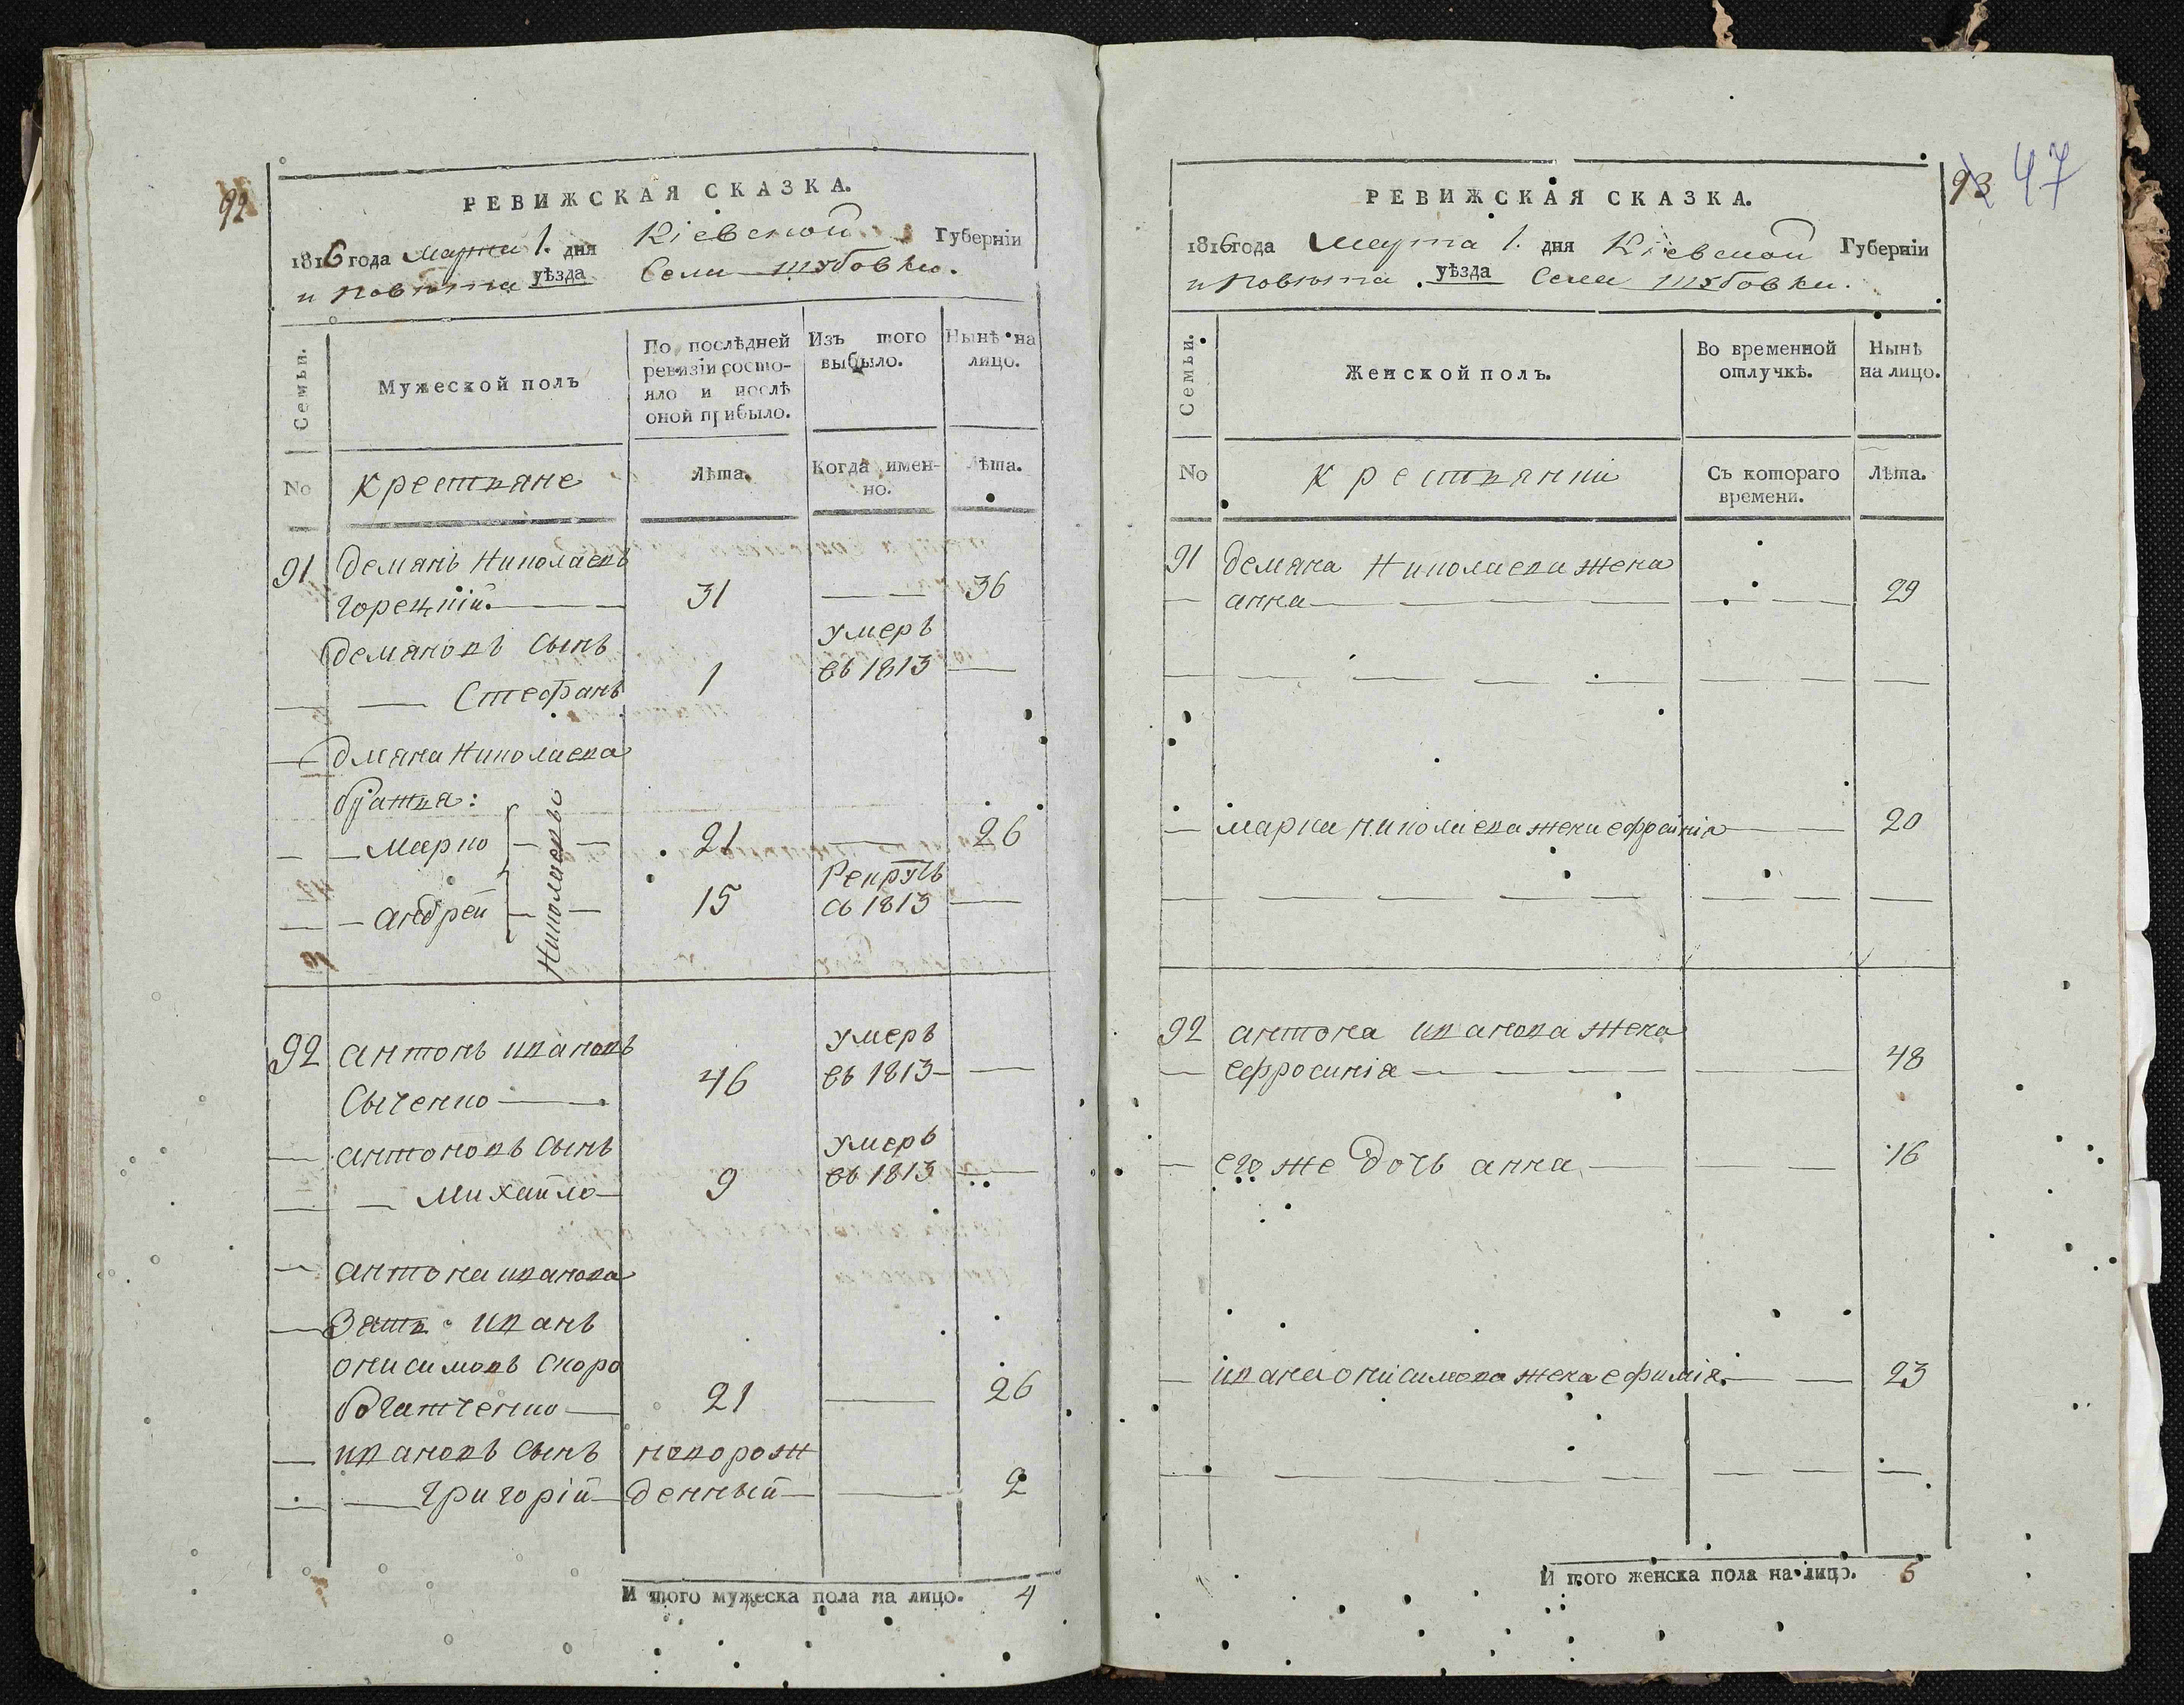 92
РЕВИЖСКАЯ СКАЗКА.
1816 года Марта 1. дня Кіевской Губерніи
и Повѣта уѣзда Села
Семьи.
Мужеской полъ
По послѣдней ревизіи состо-
яло и послѣ
оной прибыло.
Изъ того
выбыло.
Нынѣ на
лицо.
No
Крестьяне
Лѣта.
Когда имен-
но.
Лѣта.
91 Демянъ Николаевъ
Горецкій 31 36
Демяновъ Сынъ умеръ
Стефанъ 1 въ 1813
Дмяна Николаева
братья:
Марко 21 26
Николаевы
Андрей 15 Рекрутъ
съ 1813
92 Антонъ Ивановъ умеръ
Сыченко 46 въ 1813
Антоновъ Сынъ умеръ
Михайло 9 въ 1813
Антона Иванова
Зять Иванъ
Онисимовъ Скоро
богатченко 21 26
Ивановъ Сынъ новорож
Григорій денный 2
И того мужеска пола на лицо. 4
93 47
РЕВИЖСКАЯ СКАЗКА.
1816 года Марта 1. дня Кіевской Губерніи
и Повѣта уѣзда Села
Семьи.
Женской полъ.
Во временной
отлучкѣ.
Нынѣ
на лицо.
No
Крестьянки
Съ котораго
времени.
Лѣта.
91 Демяна Николаева жена
Анна 29
Марка Николаева жена 20
92 Антона Иванова жена
Ефросинія 48
его же Дочь Анна 16
Ивана Онисимова жена Ефимія 23
И того женска пола на лицо. 5